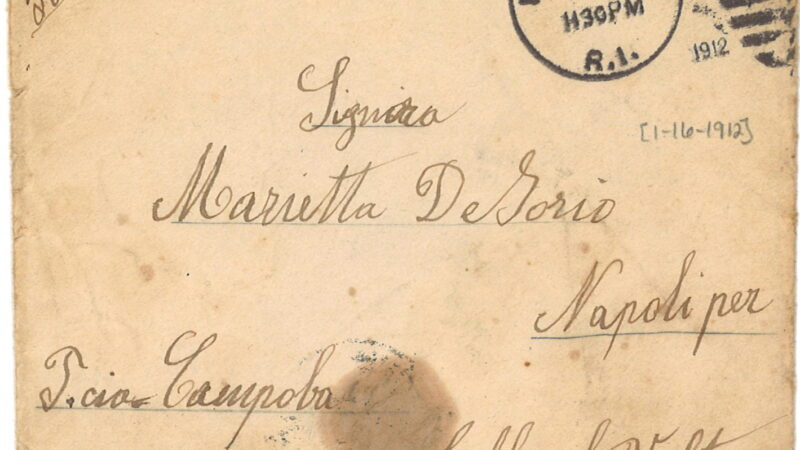 1130PM
R.I.
1912
Signora
[1-16-1912]
Marietta De Gorio
Napoli per
P.cia Campoba